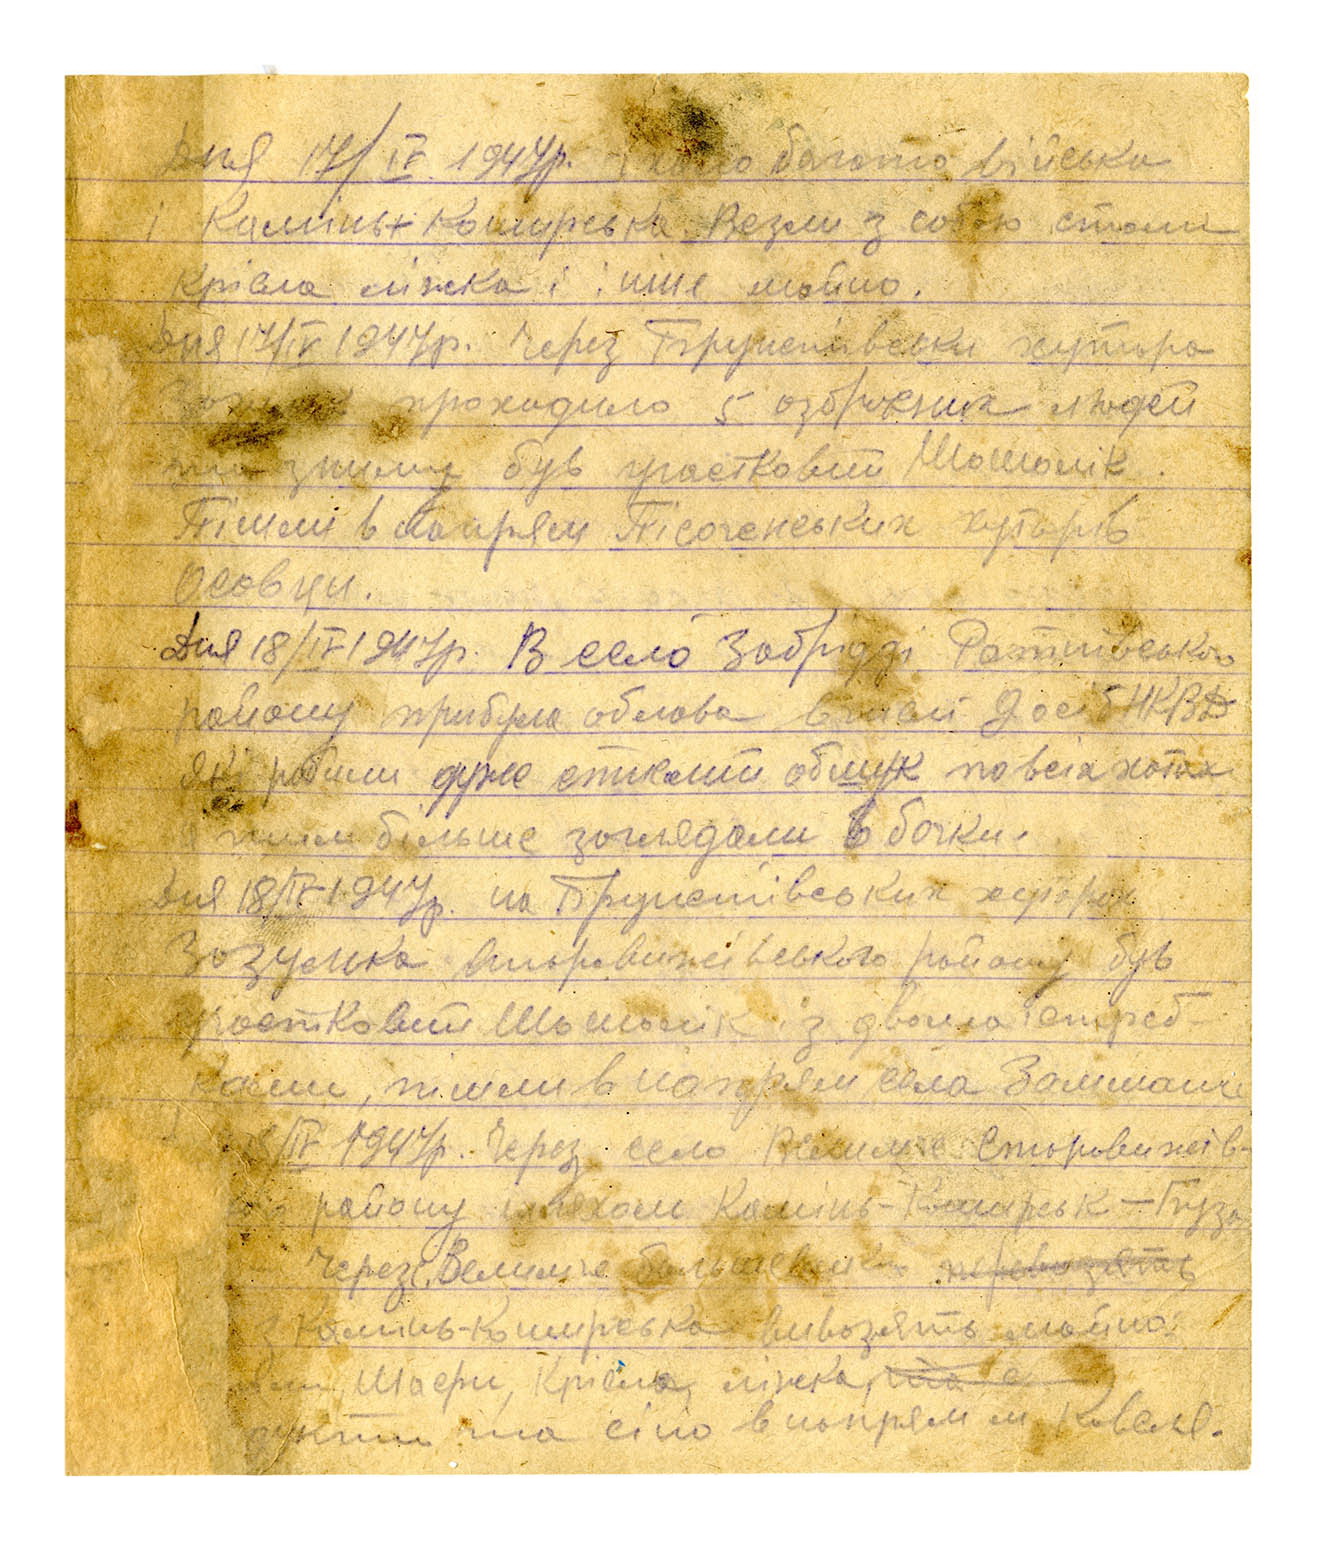 Дня 17/IV 1947р. їхало багато війська
і Камінь-Коширська Везли з собою столи
крісла ліжка і інше майно.
Дня 17/IV 1947р. Через Брунетівськи хутора
проходило 5 озброєних людей
та зними був участковий Шошолік.
Пішли в напрям Пісоченських хуторів
Осовци.
Дня 18/IV 1947р. В село Забрідді Ратнівського
району прибула облава в числі 9 осіб НКВД
які робили дуже стислий обшук по всіх хатах
більше заглядали в бочки.
Дня 18/IV 1947р. на Брунетівських хуторах
Зозулька Старовижівського району був
участковий Шошолік із двома істреб-
ками, пішли в напрям села Залишанче
18/IV 1947р. Через село Велимче Старовижів-
району шляхом Камінь-Коширськ – Буза
Через Велимче большевики перевозять
з Камінь-Коширська вивозять майно:
Шафи, Крісла, ліжка, та
та сіно в напрям м Ковеля.